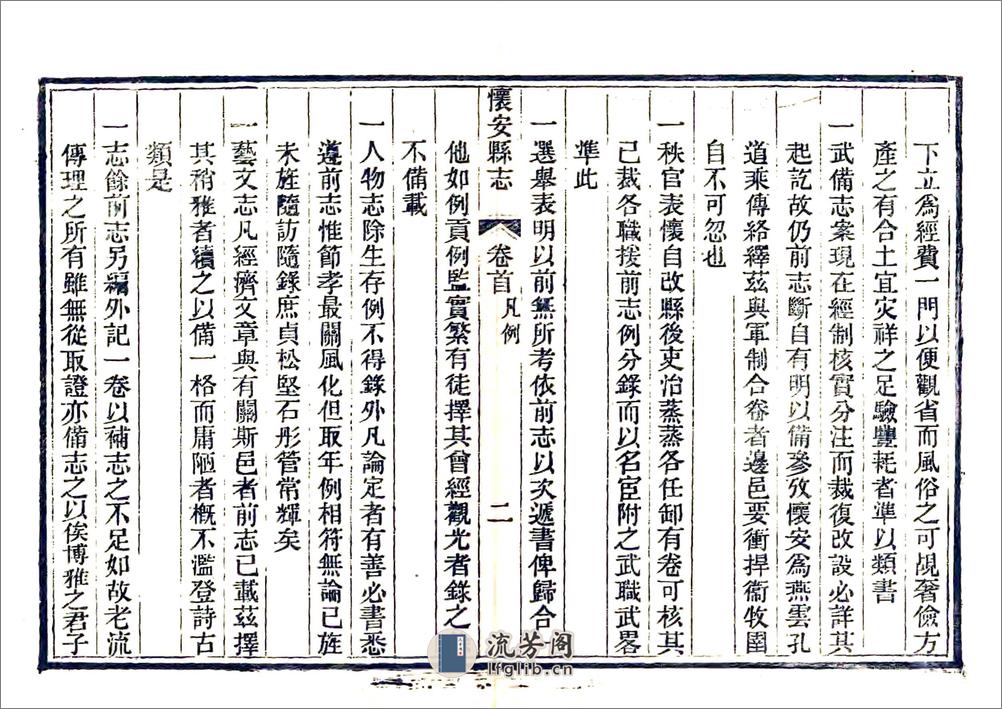 下立為經費一門以便觀省而風俗之可覘奢儉方
產之有合土宜灾祥之足驗豐耗者準以類書
一武備志案現在經制核實分注而裁復改設必詳其
起訖故仍前志斷自有明以備參攷懷安為燕雲孔
道乘傳絡繹茲與軍制合卷者邊邑要衝捍衞牧圉
自不可忽也
一秩官表懷自改縣後吏治蒸蒸各任卸有卷可核其
已裁各職援前志例分錄而以名宦附之武職武畧
準此
一選舉表明以前無所考依前志以次遞書俾歸合一
懷安縣志
卷首
凡例
二
他如例貢例監實繁有徒擇其曾經觀光者錄之餘
不備載
一人物志除生存例不得錄外凡論定者有善必書悉
遵前志惟節孝最關風化但取年例相符無論已旌
未旌隨訪隨錄庶貞松堅石彤管常輝矣
一藝文志凡經濟文章與有關斯邑者前志已載茲擇
其稍雅者續之以備一格而庸陋者概不濫登詩古
類是
一志餘前志另編外記一卷以補志之不足如故老流
傳理之所有雖無從取證亦備志之以俟博雅之君子
流芳阁
lfglib.cn